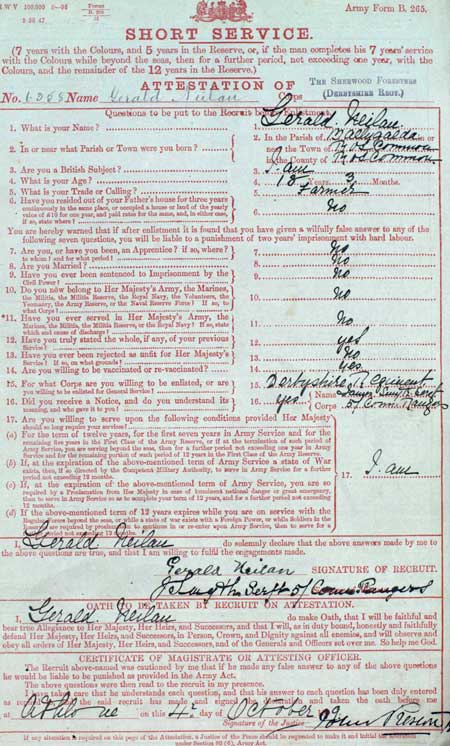 Army Form B. 265.
SHORT SERVICE.
(7 years with the Colours, and 5 years in the Reserve, or, if the man completes his 7 years' service
with the Colours while beyond the seas, then for a further period, not exceeding one year, with the
Colours, and the remainder of the 12 years in the Reserve.)
ATTESTATION OF
No. Name Gerald Neilan Corps THE SHERWOOD FORESTERS (DERBYSHIRE REGT.)
Questions to be put to the Recruit before Enlistment
1. What is your Name? 1. Gerald Neilan
2. In or near what Parish or Town were you born? 2. In the Parish of
the Town of
in the County of Roscommon
3. Are you a British Subject? 3. I am
4. What is your Age? 4. 18 Years 3 Months.
5. What is your Trade or Calling? 5. Farmer
6. Have you resided out of your Father's house for three years
continuously in the same place, or occupied a house or land of the yearly
value of £10 for one year, and paid rates for the same, and, in either case,
if so, state where? 6. No
You are hereby warned that if after enlistment it is found that you have given a wilfully false answer to any of the
following seven questions, you will be liable to a punishment of two years' imprisonment with hard labour.
7. Are you, or have you been, an Apprentice? if so, where?
to whom? and for what period? 7. No
8. Are you Married? 8. No
9. Have you ever been sentenced to Imprisonment by the
Civil Power? 9. No
10. Do you now belong to Her Majesty's Army, the Marines,
the Militia, the Militia Reserve, the Royal Navy, the Volunteers, the
Yeomanry, the Army Reserve, or the Naval Reserve Force? If so, to
what Corps? 10. No
*11. Have you ever served in Her Majesty's Army, the
Marines, the Militia, the Militia Reserve, or the Royal Navy? If so, state
which and cause of discharge? 11. No
12. Have you truly stated the whole, if any, of your previous
Service? 12. yes
13. Have you ever been rejected as unfit for Her Majesty's
Service? If so, on what grounds? 13. No
14. Are you willing to be vaccinated or re-vaccinated? 14. yes
15. For what Corps are you willing to be enlisted, or are
you willing to be enlisted for General Service? 15. Derbyshire Regiment
16. Did you receive a Notice, and do you understand its
meaning, and who gave it to you? 16. yes Name
Corps
17. Are you willing to serve upon the following conditions provided Her Majesty
should so long require your services?
(a) For the term of twelve years, for the first seven years in Army Service and for the
remaining five years in the First Class of the Army Reserve, or if at the termination of such period of
Army Service, you are serving beyond the seas, then for a further period not exceeding one year in Army
Service and for the remaining portion of such period of 12 years in the First Class of the Army Reserve.
(b) If, at the expiration of the above-mentioned term of Army Service a state of War
exists, then, if so directed by the Competent Military Authority, to serve in Army Service for a further
period not exceeding 12 months.
(c) If, at the expiration of the above-mentioned term of Army Service, you are so
required by a Proclamation from Her Majesty in case of imminent national danger or great emergency,
then to serve in Army Service so as to complete your term of 12 years, and for a further period not exceeding
12 months.
(d) If the above-mentioned term of 12 years expires while you are on service with the
Regular Forces beyond the seas, or while a state of war exists with a Foreign Power, or while Soldiers in the
Reserve are required by proclamation to continue in or re-enter upon Army Service, then to serve for a
further period not exceeding 12 months.
17. I am
I, Gerald Neilan do solemnly declare that the above answers made by me to
the above questions are true, and that I am willing to fulfil the engagements made.
Gerald Neilan SIGNATURE OF RECRUIT.
OATH TO BE TAKEN BY RECRUIT ON ATTESTATION.
I, Gerald Neilan do make Oath, that I will be faithful and
bear true Allegiance to Her Majesty, Her Heirs, and Successors, and that I will, as in duty bound, honestly and faithfully
defend Her Majesty, Her Heirs, and Successors, in Person, Crown, and Dignity against all enemies, and will observe and
obey all orders of Her Majesty, Her Heirs, and Successors, and of the Generals and Officers set over me. So help me God.
CERTIFICATE OF MAGISTRATE OR ATTESTING OFFICER.
The Recruit above-named was cautioned by me that if he made any false answer to any of the above questions
he would be liable to be punished as provided in the Army Act.
The above questions were then read to the recruit in my presence.
I have taken care that he understands each question, and that his answer to each question has been duly entered
as replied to, and the said recruit has made and signed the declaration and taken the oath before me
at Athlone on this 4th day of October
Signature of the Justice
If any alteration is required on this page of the Attestation, a Justice of the Peace should be requested to make it and initial the alteration
under Section 80 (6), Army Act.